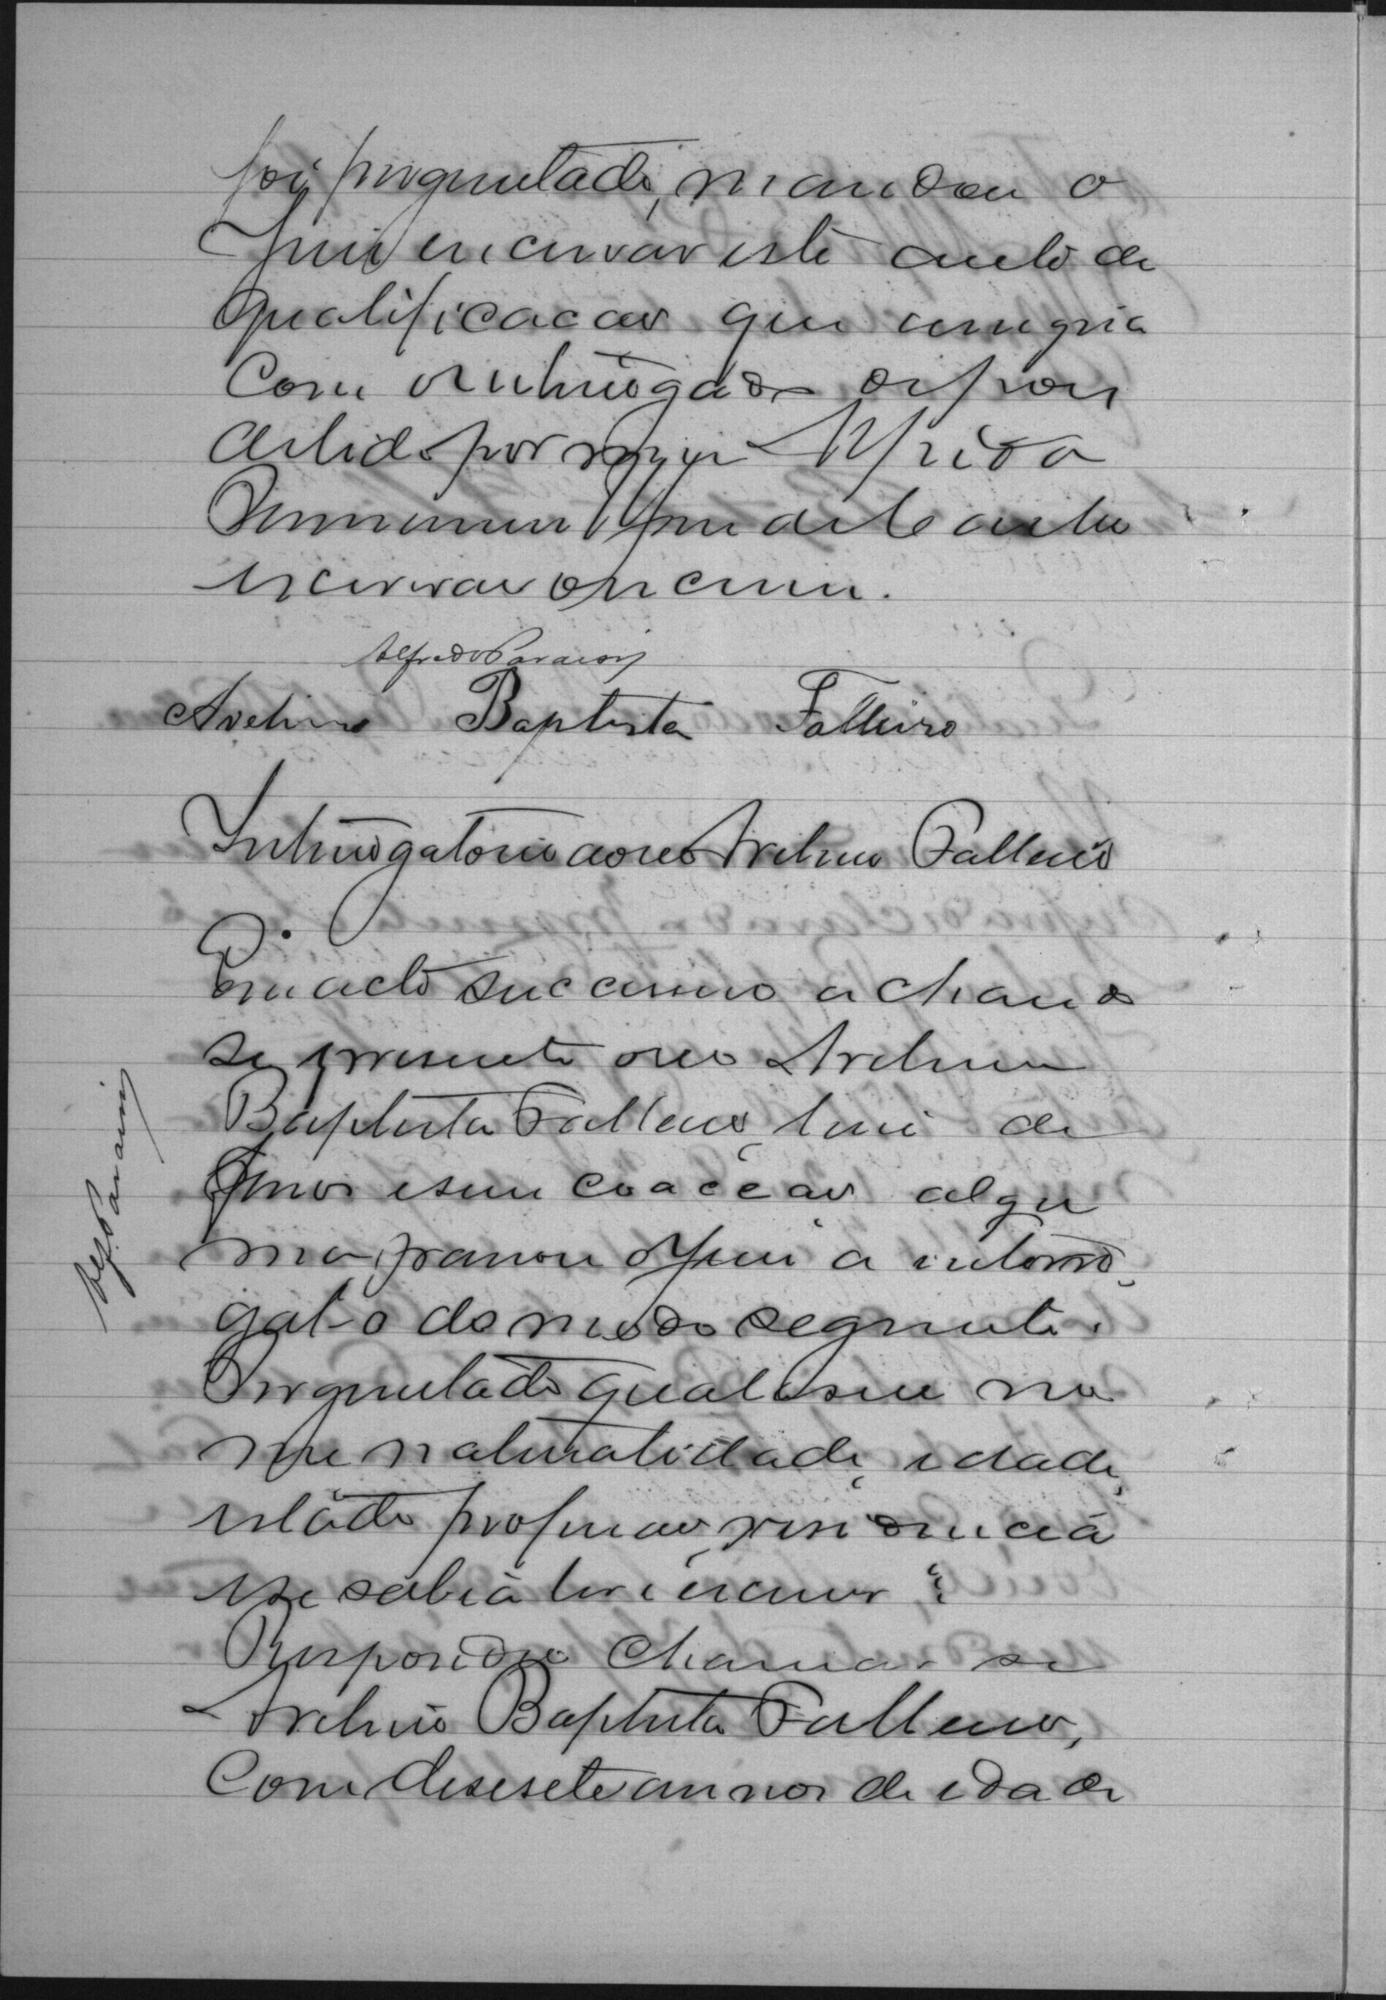 foi perguntado, mandou o
Juiz encerrar este auto de
qualificacao que assigna
com o interrogado depois
de lido por mim
escrivao o escrevi.
Alfredo
Avelino Baptista Falleiro
Interrogatorio ao reo Avelino Falleiro
Em acto successivo achando
se presente o reo Avelino
Baptista Falleiro, livre de
ferros e sem coacçao algu
ma, passou o Juiz a interro-
gal-o do modo seguinte.
Perguntado qual o seu no
me naturalidade, idade,
estado profissao, residencia
e se sabia ler e escrever?
Respondeu chamar se
Avelino Baptista Falleiro,
com desesete annos de idade